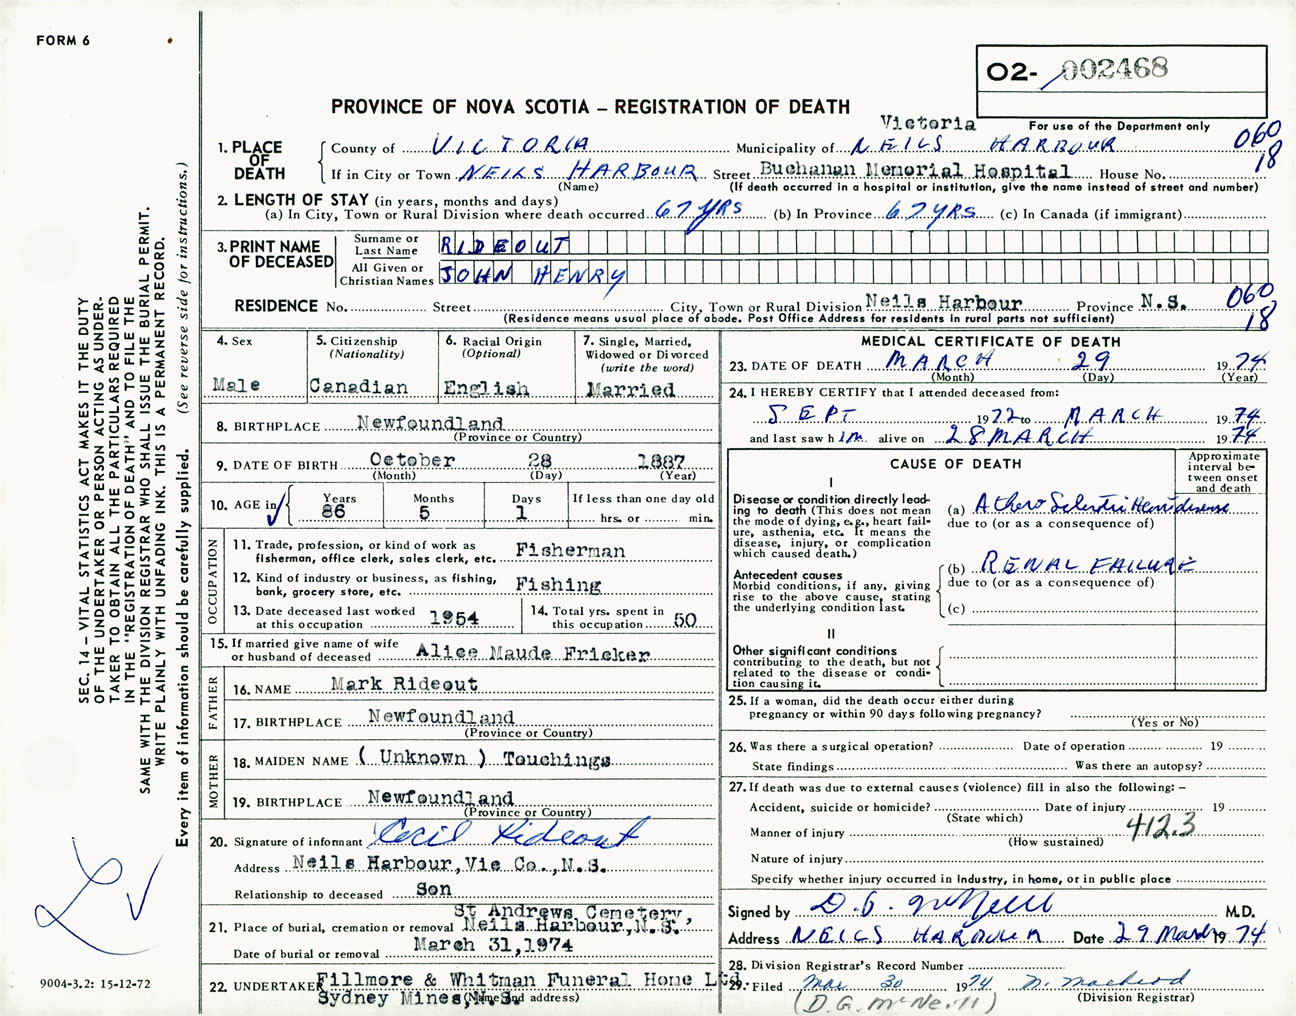 FORM 6
O2- 002468
PROVINCE OF NOVA SCOTIA – REGISTRATION OF DEATH
Victoria
For use of the Department only
1. PLACE OF DEATH
County of VICTORIA Municipality of NEILS HARBOUR 060 18
If in City or Town NEILS HARBOUR Street Buchanan Memorial Hospital House No.
(Name) (If death occurred in a hospital or institution, give the name instead of street and number)
2. LENGTH OF STAY (in years, months and days)
(a) In City, Town or Rural Division where death occurred 67 YRS (b) In Province 67 YRS (c) In Canada (if immigrant)
3. PRINT NAME OF DECEASED
Surname or Last Name RIDEOUT
All Given or Christian Names JOHN HENRY
RESIDENCE No. Street City, Town or Rural Division Neils Harbour Province N.S. 060 18
(Residence means usual place of abode. Post Office Address for residents in rural parts not sufficient)
4. Sex
Male
5. Citizenship (Nationality)
Canadian
6. Racial Origin (Optional)
English
7. Single, Married, Widowed or Divorced (write the word)
Married
8. BIRTHPLACE Newfoundland
(Province or Country)
9. DATE OF BIRTH October 28 1887
(Month) (Day) (Year)
10. AGE in
Years 86 Months 5 Days 1 If less than one day old
hrs. or min.
OCCUPATION
11. Trade, profession, or kind of work as fisherman, office clerk, sales clerk, etc. Fisherman
12. Kind of industry or business, as fishing, bank, grocery store, etc. Fishing
13. Date deceased last worked at this occupation 1954
14. Total yrs. spent in this occupation 50
15. If married give name of wife or husband of deceased Alice Maude Fricker
FATHER
16. NAME Mark Rideout
17. BIRTHPLACE Newfoundland
(Province or Country)
MOTHER
18. MAIDEN NAME ( Unknown ) Touchings
19. BIRTHPLACE Newfoundland
(Province or Country)
20. Signature of informant Cecil Rideout
Address Neils Harbour, Vic Co., N.S.
Relationship to deceased Son
St Andrews Cemetery,
21. Place of burial, cremation or removal Neils Harbour, N.S.
Date of burial or removal March 31, 1974
22. UNDERTAKER Fillmore & Whitman Funeral Home Ltd.
Sydney Mines, N.S. (Name and address)
MEDICAL CERTIFICATE OF DEATH
23. DATE OF DEATH MARCH 29 19 74
(Month) (Day) (Year)
24. I HEREBY CERTIFY that I attended deceased from:
SEPT 1972 to MARCH 19 74
and last saw h im alive on 28 MARCH 19 74
CAUSE OF DEATH
Approximate interval between onset and death
I
Disease or condition directly leading to death (This does not mean the mode of dying, e.g., heart failure, asthenia, etc. It means the disease, injury, or complication which caused death.)
(a)
due to (or as a consequence of)
Antecedent causes
Morbid conditions, if any, giving rise to the above cause, stating the underlying condition last.
(b) RENAL FAILURE
due to (or as a consequence of)
(c)
II
Other significant conditions
contributing to the death, but not related to the disease or condition causing it.
25. If a woman, did the death occur either during pregnancy or within 90 days following pregnancy?
(Yes or No)
26. Was there a surgical operation? Date of operation 19
State findings Was there an autopsy?
27. If death was due to external causes (violence) fill in also the following: –
Accident, suicide or homicide? Date of injury 19
(State which) 412.3
Manner of injury
(How sustained)
Nature of injury
Specify whether injury occurred in industry, in home, or in public place
Signed by D. G. McNeill M.D.
Address NEILS HARBOUR Date 29 March 19 74
28. Division Registrar's Record Number
29. Filed Mar 30 1974 N. MacLeod
(D.G. McNeill) (Division Registrar)
SEC. 14 – VITAL STATISTICS ACT MAKES IT THE DUTY
OF THE UNDERTAKER OR PERSON ACTING AS UNDERTAKER
TO OBTAIN ALL THE PARTICULARS REQUIRED
IN THE "REGISTRATION OF DEATH" AND TO FILE THE
SAME WITH THE DIVISION REGISTRAR WHO SHALL ISSUE THE BURIAL PERMIT.
WRITE PLAINLY WITH UNFADING INK. THIS IS A PERMANENT RECORD.
Every item of information should be carefully supplied. (See reverse side for instructions.)
9004-3.2: 15-12-72